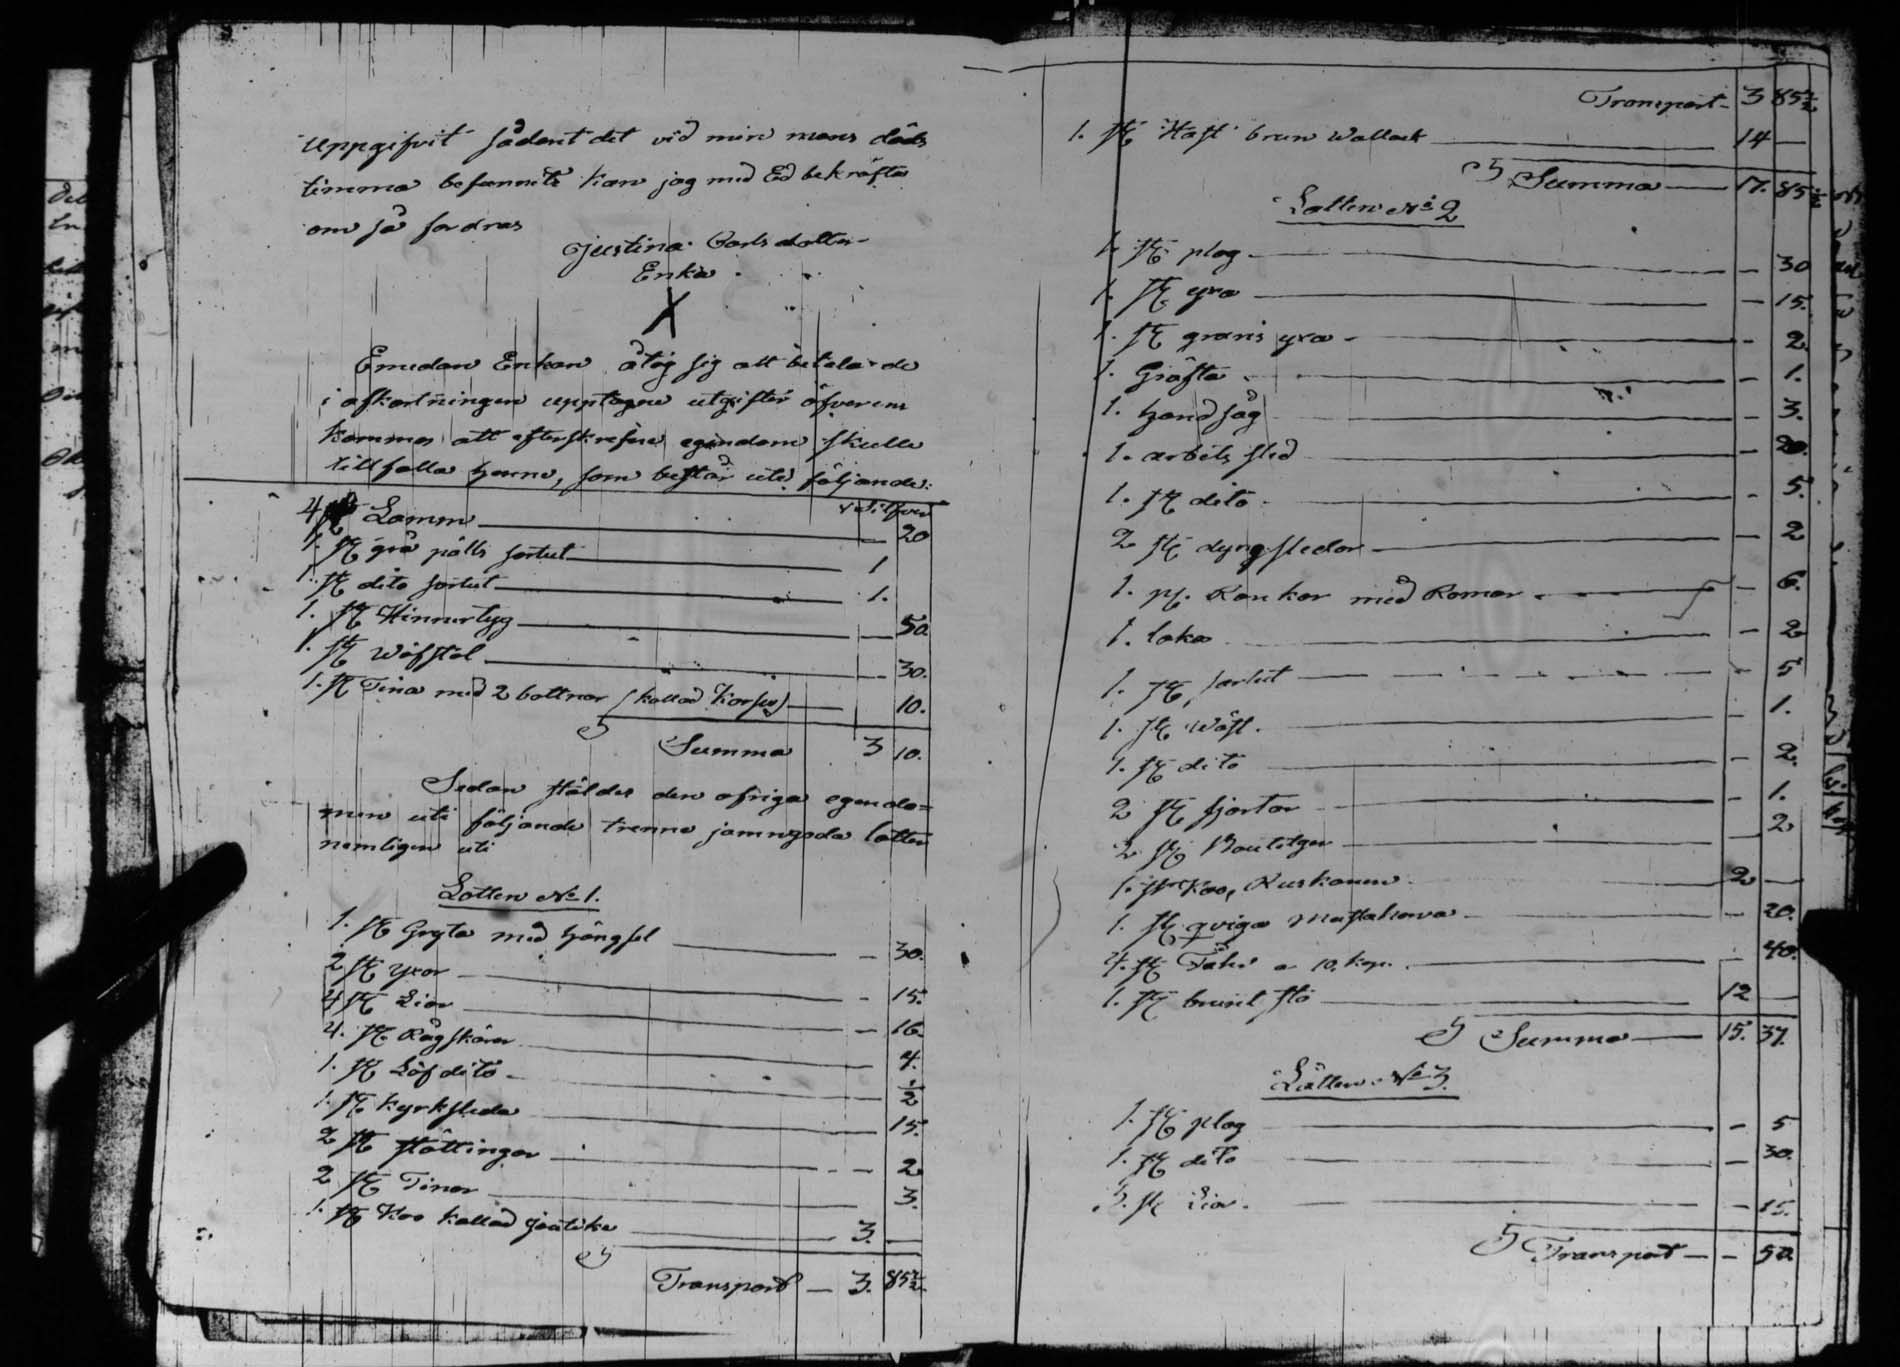 uppgifvit sådant det vid min mans döds
timma befannits kan jag med Ed bekräfta
om så fordras
Justina Carlsdotter
Enka
X
Emedan Enkan åtog sig att betala de
i afkortningen upptagne utgifter öfverens
kommos att efterskrefne egendom skulle
tillfalla henne, som består uti följande:
Silfver
4 st Lamm — 20
1. st grå påtts sortut — 1
1. st dito sortut — 1.
1. st Kinnurtyg — 50
1. st Wäfstol — 30.
1. st Tina med 2 bottnar (kallad Korfw) — 10.
Summa 3 10.
Sedan stäldes den öfriga egendo=
men uti följande trenne jamngoda lotter
nemligen uti
Lotten No 1.
1. st Gryta med hängsel — 30.
2 st Yxor — 15.
4 st Liar — 16
4. st Rågskäror — 4.
1. st Löf dito — 1/2
1. st Kyrksleda — 15.
2 st Hättingar — 2
2 st Tinor — 3.
1. st Koo kallad — 3. —
Transport — 3. 85 1/2
Transport — 3 85 1/2
1. st Häst brun Wallack — 14 —
Summa — 17. 85 1/2
Lotten No 2
1. st plog — 30
1. st yxa — 15.
1. st yxa — 2
1. Gräfta — 1.
1. handsåg — 3.
1. arbets sled — 20.
1. st dito — 5.
2 st dyngsledar — 2
1. Kankor med Romor — 6.
1. loka — 2
1. st sortut — 5
1. st Wäst — 1.
1. st dito — 2.
2 st sjortor — 1.
2 st — 2
1. st Koo, Ruskanum — 2 —
1. st qviga — 20.
4. st Fåhr a 10. kop. — 40.
1. st brunt sto — 12 —
Summa — 15. 37.
Lotten No 3.
1. st plog — 5
1. st dito — 30.
3. st Liar — 15.
Transport — 50.